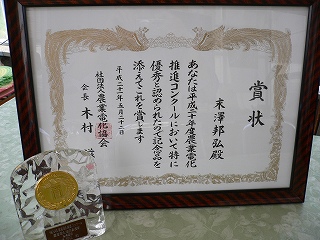 賞状
末澤邦弘殿
あなたは平成二十年度農業電化
推進コンクールにおいて特に
優秀と認められたので記念品を
添えてこれを賞します
平成二十一年五月二十二日
社団法人農業電化協会
会長 木村